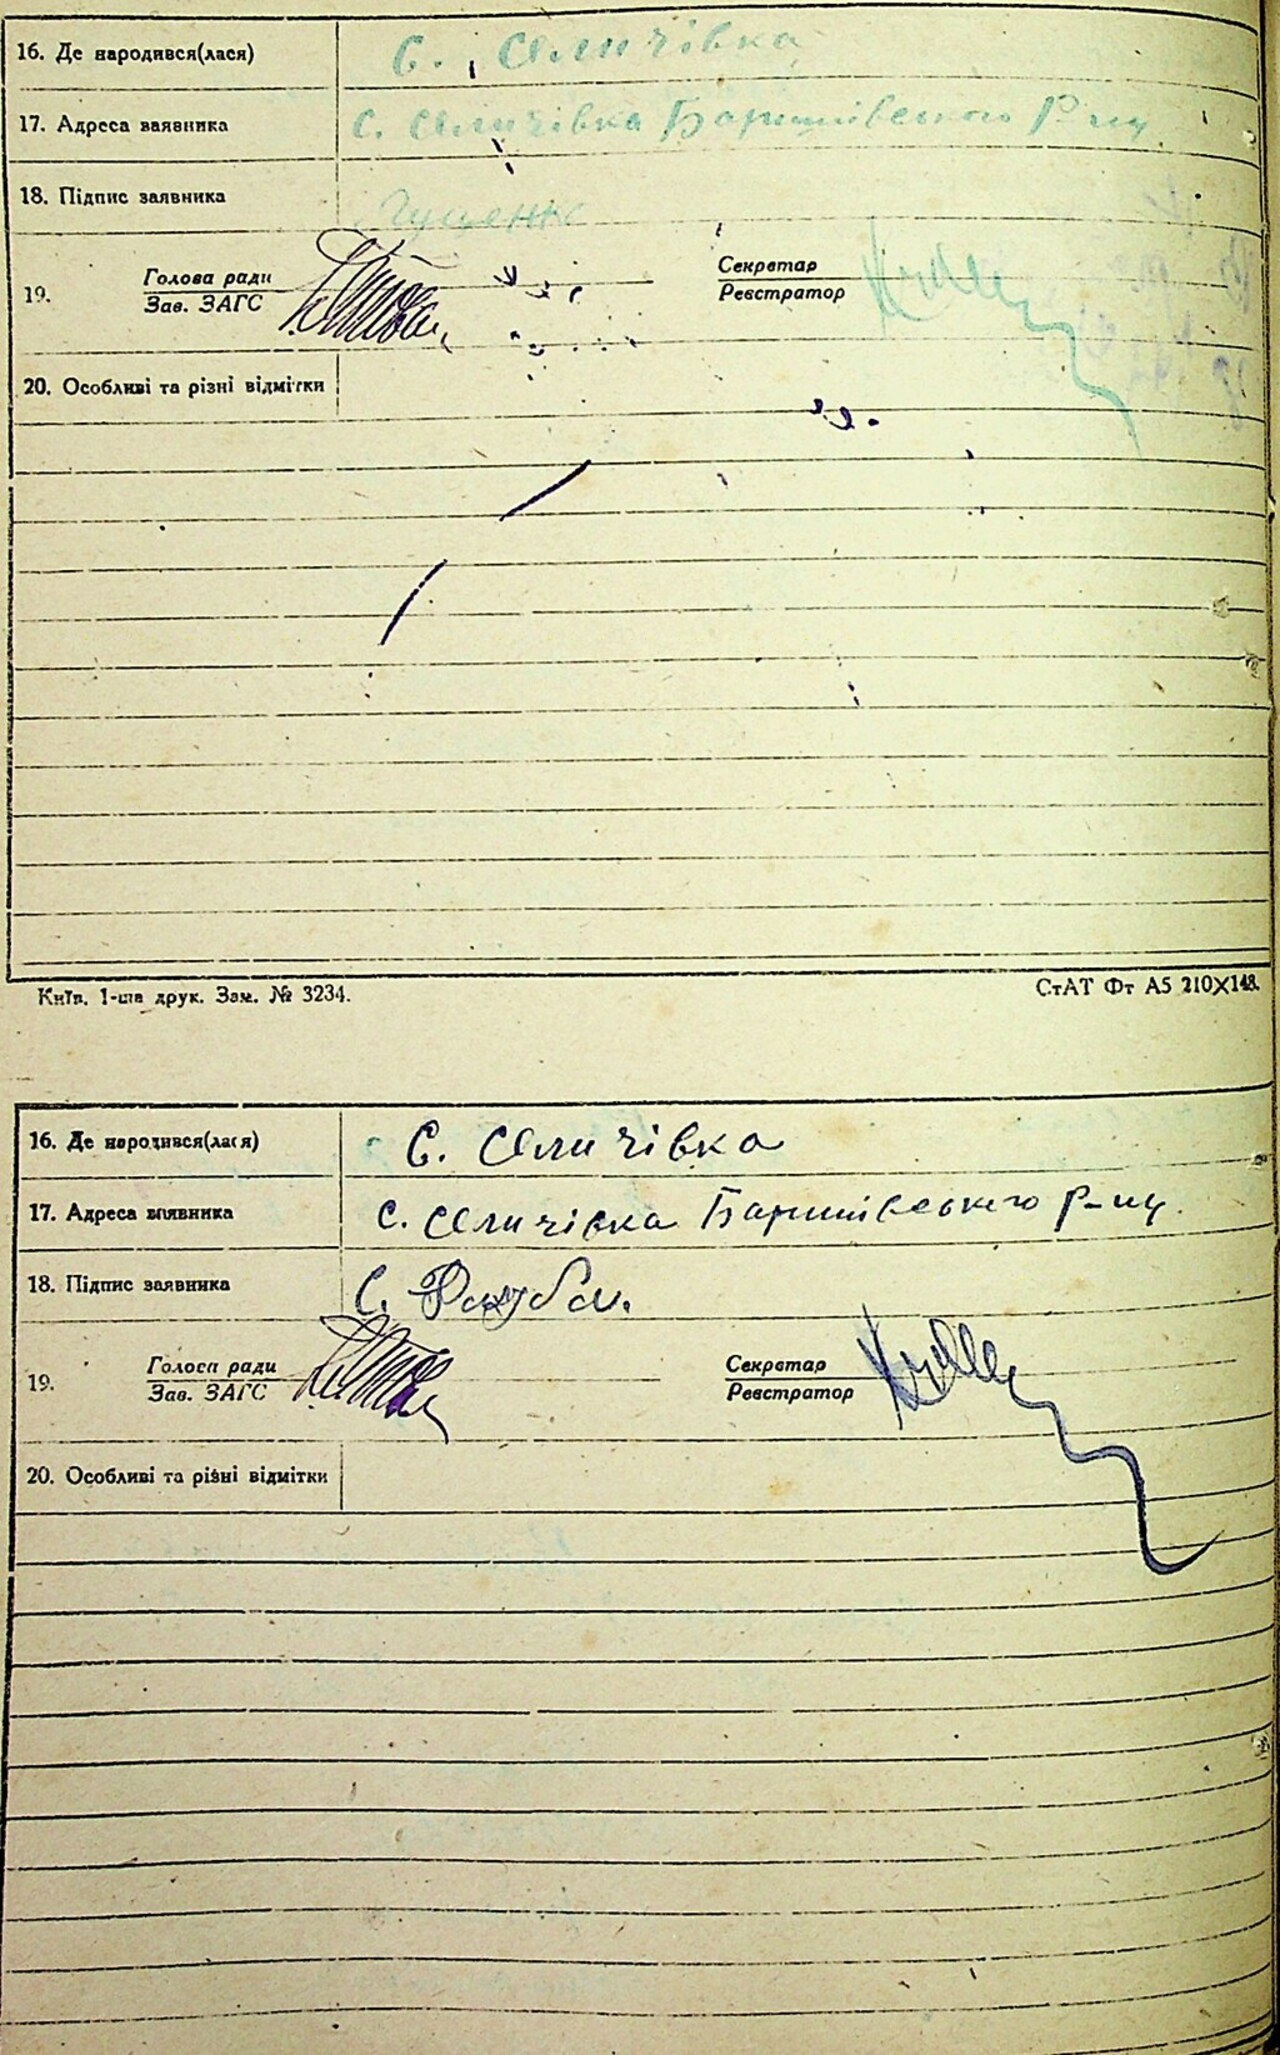 16. Де народився(лася) С. Селичівка
17. Адреса заявника с. Селичівка Баришівського Р-ну
18. Підпис заявника
19. Голова ради Секретар
Зав. ЗАГС Реєстратор
20. Особливі та різні відмітки
Київ. 1-ша друк. Зам. № 3234. СтАТ Фт А5 210X148.
16. Де народився(лася) С. Селичівка
17. Адреса заявника с. Селичівка Баришівського Р-ну.
18. Підпис заявника С.
19. Голова ради Секретар
Зав. ЗАГС Реєстратор
20. Особливі та різні відмітки